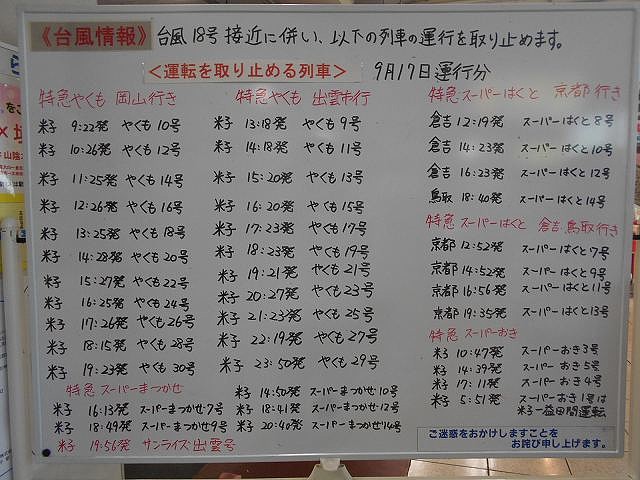 《台風情報》 台風18号接近に併い、以下の列車の運行を取り止めます。
<運転を取り止める列車> 9月17日運行分
特急やくも 岡山行き
米子 9:22発 やくも10号
米子 10:26発 やくも12号
米子 11:25発 やくも14号
米子 12:26発 やくも16号
米子 13:25発 やくも18号
米子 14:28発 やくも20号
米子 15:27発 やくも22号
米子 16:25発 やくも24号
米子 17:26発 やくも26号
米子 18:15発 やくも28号
米子 19:23発 やくも30号
特急やくも 出雲市行
米子 13:18発 やくも9号
米子 14:18発 やくも11号
米子 15:20発 やくも13号
米子 16:20発 やくも15号
米子 17:23発 やくも17号
米子 18:23発 やくも19号
米子 19:21発 やくも21号
米子 20:27発 やくも23号
米子 21:23発 やくも25号
米子 22:19発 やくも27号
米子 23:50発 やくも29号
特急 スーパーまつかぜ
米子 16:13発 スーパーまつかぜ7号
米子 18:49発 スーパーまつかぜ9号
米子 14:50発 スーパーまつかぜ10号
米子 18:41発 スーパーまつかぜ12号
米子 20:40発 スーパーまつかぜ14号
米子 19:56発 サンライズ出雲号
特急 スーパーはくと 京都行き
倉吉 12:19発 スーパーはくと8号
倉吉 14:23発 スーパーはくと10号
倉吉 16:23発 スーパーはくと12号
鳥取 18:40発 スーパーはくと14号
特急 スーパーはくと 倉吉鳥取行き
京都 12:52発 スーパーはくと7号
京都 14:52発 スーパーはくと9号
京都 16:56発 スーパーはくと11号
京都 19:35発 スーパーはくと13号
特急 スーパーおき
米子 10:47発 スーパーおき3号
米子 14:39発 スーパーおき5号
米子 17:11発 スーパーおき4号
米子 5:51発 スーパーおき1号は
米子ー益田間運転
ご迷惑をおかけしますことを
お詫び申し上げます。